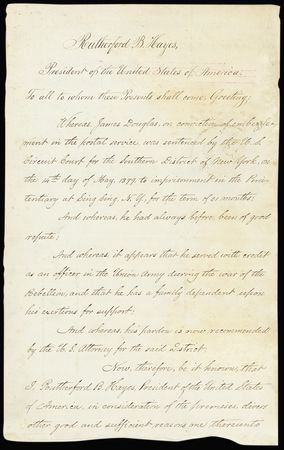 Rutherford B. Hayes,
President of the United States of America;
To all to whom these Presents shall come, Greeting:
Whereas, James Douglas, on conviction of embezzle-
ment in the postal service, was sentenced by the U. S.
Circuit Court for the Southern District of New York, on
the 14th day of May, 1879, to imprisonment in the Peni-
tentiary at Sing Sing, N. Y., for the term of months:
And whereas, he had always before been of good
repute:
And whereas, it appears that he served with credit
as an officer in the Union Army during the war of the
Rebellion, and that he has a family dependent upon
his exertions for support:
And whereas, his pardon is now recommended
by the U. S. Attorney for the said District:
Now, therefore, be it known, that
I, Rutherford B. Hayes, President of the United States
of America, in consideration of the premises, divers
other good and sufficient reasons me thereunto